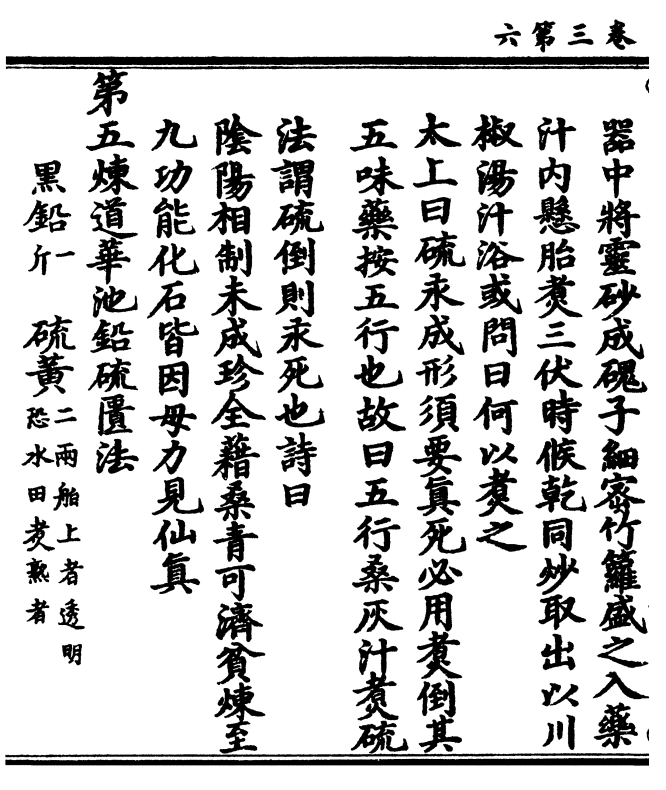 卷三第六
器中將靈砂成磈子細宻竹籮盛之入藥
汁內懸胎煑三伏時候乾同炒取出以川
椒湯汁浴或問曰何以煑之
太上曰硫汞成形須要眞死必用煑倒其
五味藥按五行也故曰五行桑灰汁煑硫
法謂硫倒則汞死也詩曰
陰陽相制未成珍全藉桑青可濟貧煉至
九功能化石皆因母力見仙眞
第五煉道華池鉛硫匱法
黑鉛一斤 硫黃二兩舶上者透明恐水田煑熟者